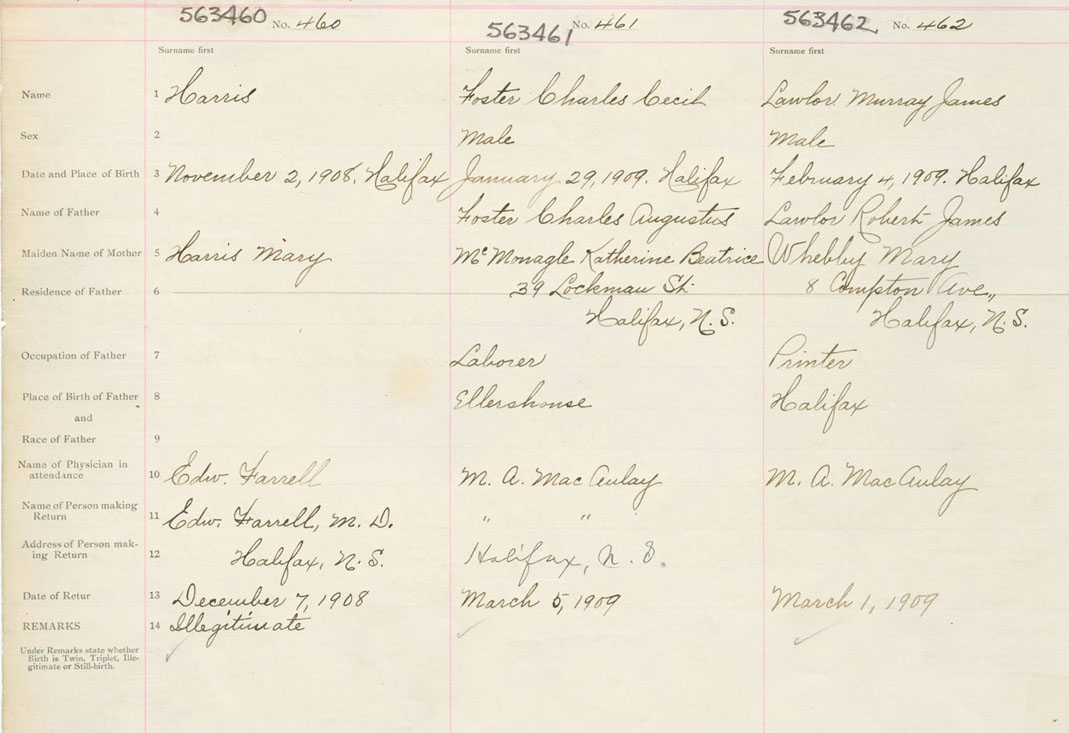 563460 No. 460 563461 No. 461 563462 No. 462
Surname first Surname first Surname first
Name 1 Harris Foster Charles Cecil Lawlor Murray James
Sex 2 Male Male
Date and Place of Birth 3 November 2, 1908. Halifax January 29, 1909. Halifax February 4, 1909. Halifax
Name of Father 4 Foster Charles Augustus Lawlor Robert James
Maiden Name of Mother 5 Harris Mary McMonagle Katherine Beatrice Whebby Mary
Residence of Father 6 39 Lockman St. 8 Compton Ave.,
Halifax, N.S. Halifax, N.S.
Occupation of Father 7 Laborer Printer
Place of Birth of Father 8 Ellershouse Halifax
and
Race of Father 9
Name of Physician in
attendance 10 Edw. Farrell M. A. MacAulay M. A. MacAulay
Name of Person making
Return 11 Edw. Farrell, M.D. " "
Address of Person mak-
ing Return 12 Halifax, N.S. Halifax, N.S.
Date of Retur 13 December 7, 1908 March 5, 1909 March 1, 1909
REMARKS 14 Illegitimate
Under Remarks state whether
Birth is Twin, Triplet, Ille-
gitimate or Still-birth.